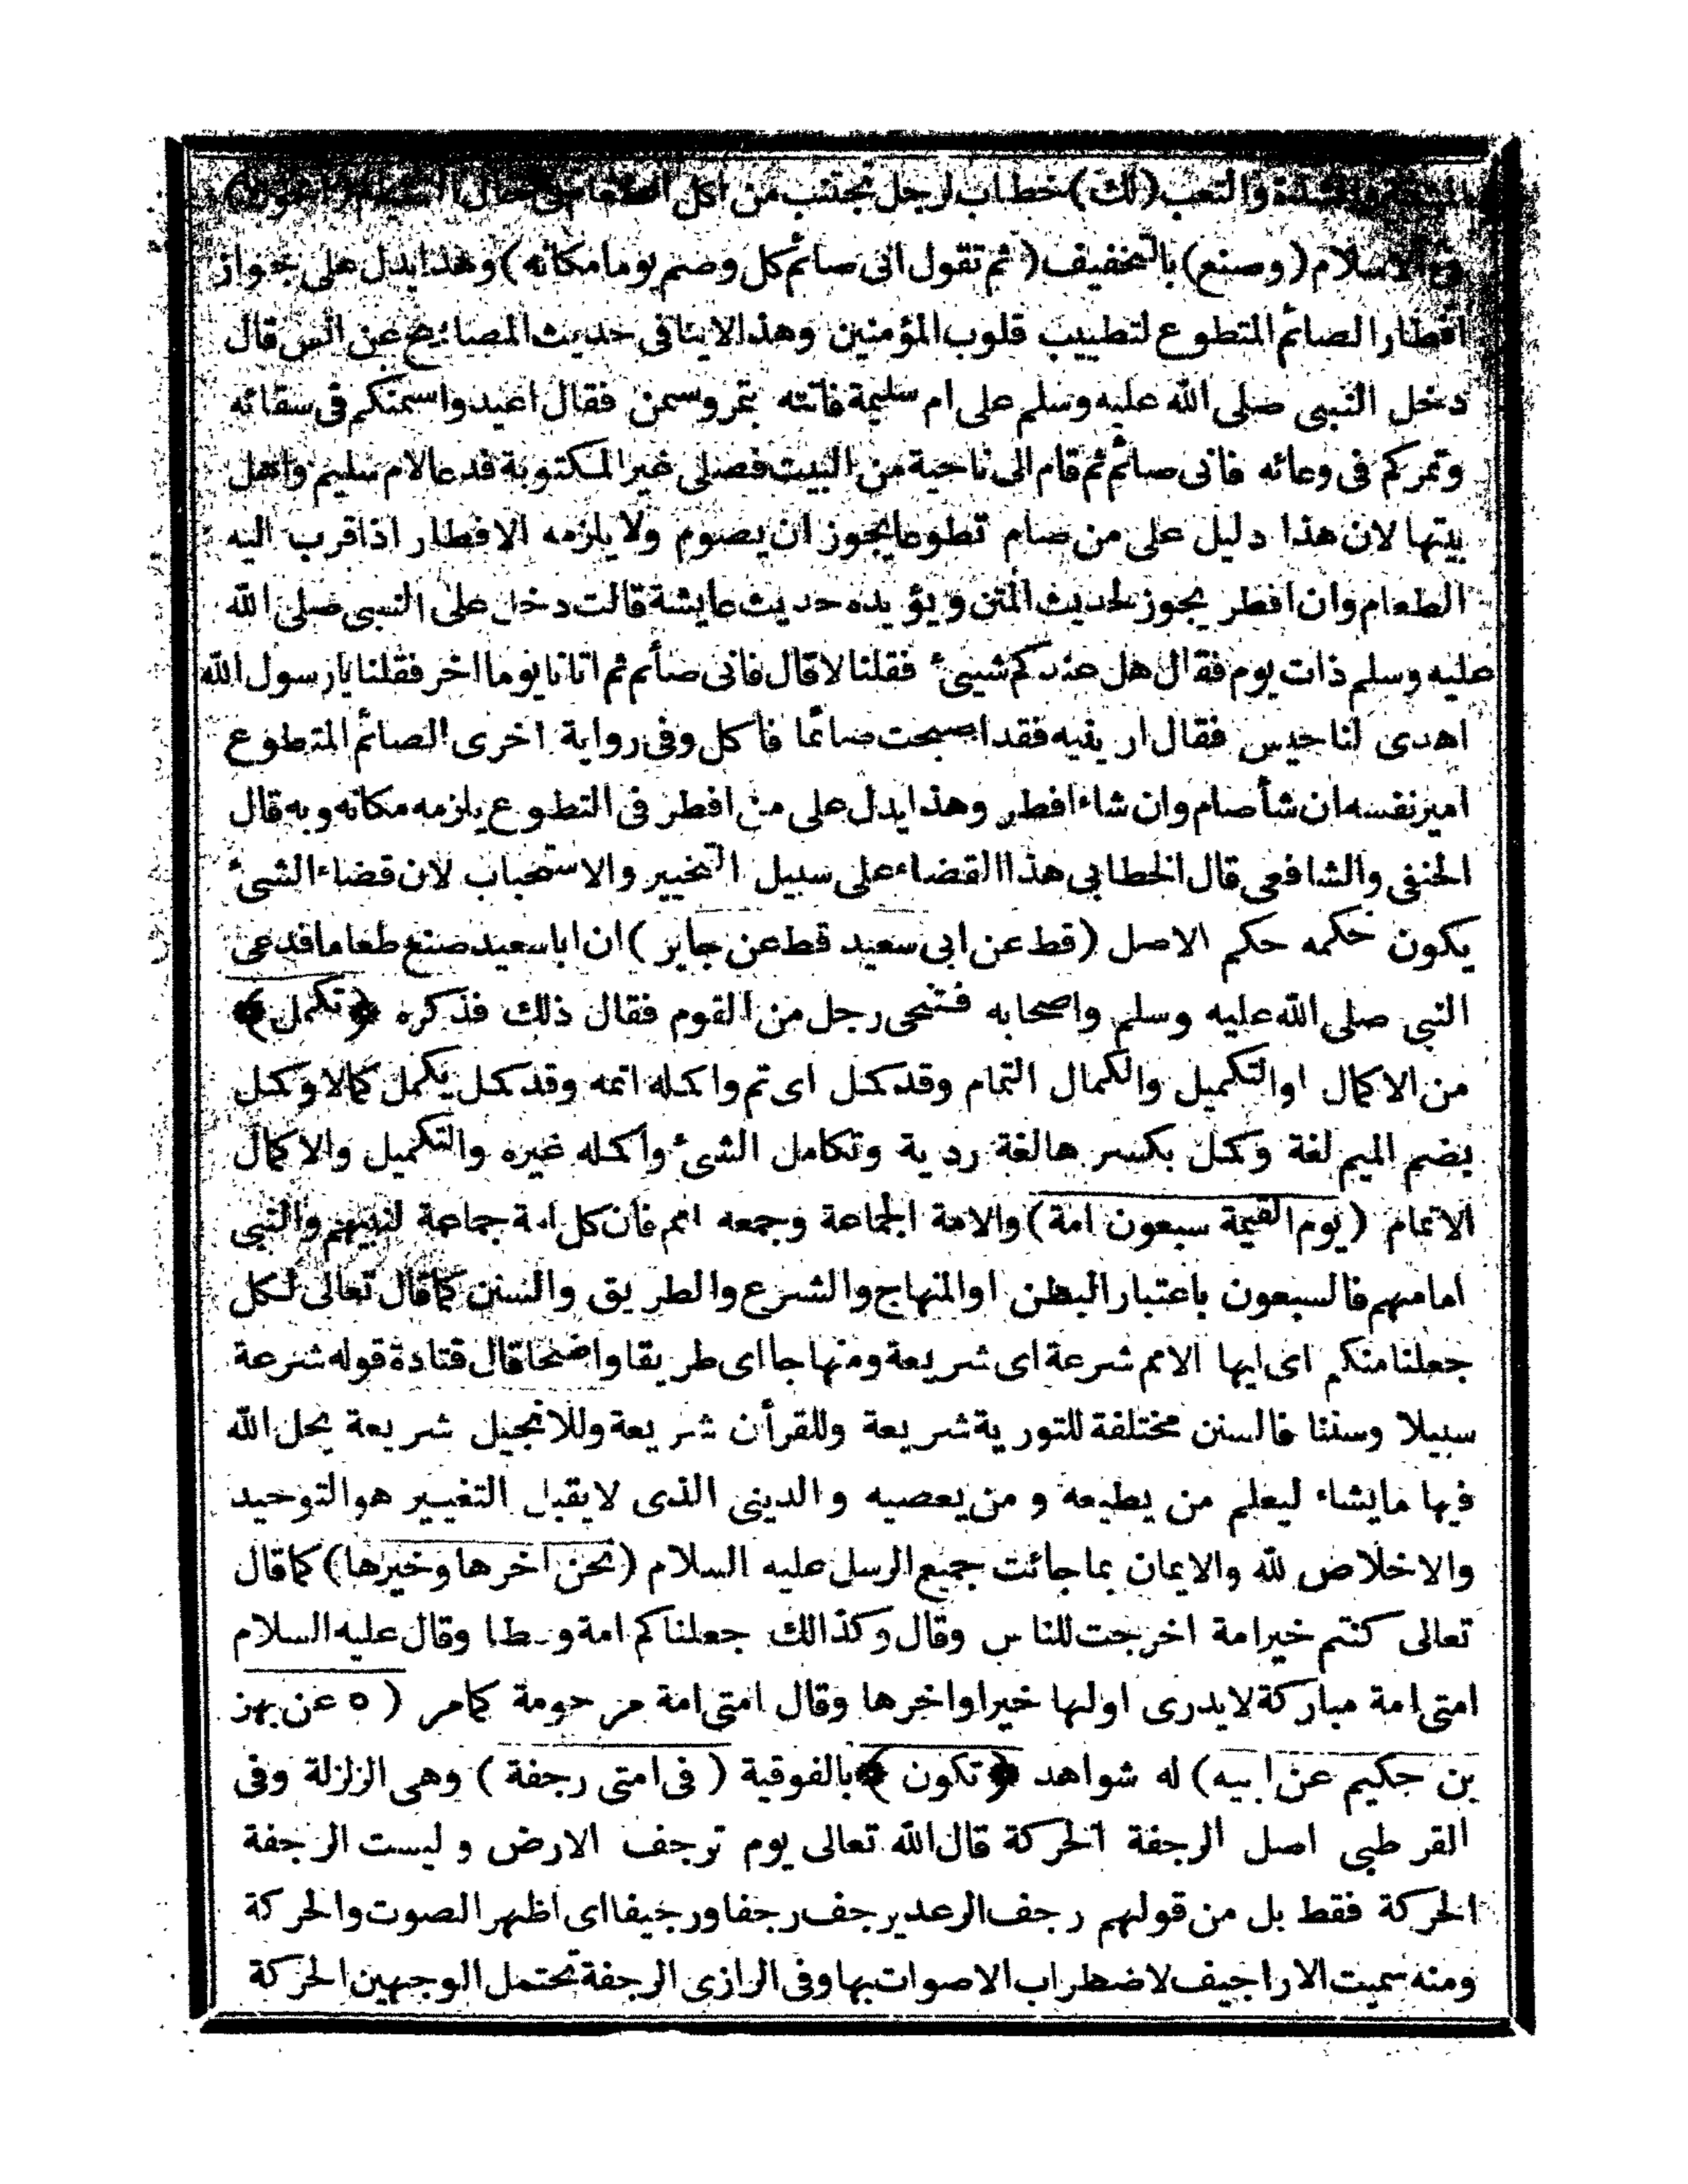 والشدة والتعب (لك) خطاب لرجل تجتنب من اكل الطعام فى حال
الاسلام (وصنع) بالتخفيف (ثم تقول انى صائم كل وصم يوما مكانه) وهذا يدل على جواز
افطار الصائم المتطوع لتطييب قلوب المؤمنين وهذا لاينافى حديث المصابيح عن انس قال
دخل النبى صلى الله عليه وسلم على ام سليمة فاتته بتمر وسمن فقال اعيدوا سمنكم فى سقائه
وتمركم فى وعائه فانى صائم ثم قام الى ناحية من البيت فصلى غير المكتوبة فدعا لام سليم واهل
بيتها لان هذا دليل على من صام تطوعا يجوز ان يصوم ولا يلزمه الافطار اذا قرب اليه
الطعام وان افطر يجوز لحديث المتن ويؤيده حديث عايشة قالت دخل على النبى صلى الله
عليه وسلم ذات يوم فقال هل عندكم شيئ فقلنا لا قال فانى صائم ثم اتانا يوما اخر فقلنا يا رسول الله
اهدى لنا حيس فقال اريفيه فقد اصبحت صائما فأكل وفى رواية اخرى الصائم المتطوع
امير نفسه ان شأ صام وان شاء افطر وهذا يدل على من افطر فى التطوع يلزمه مكانه وبه قال
الحنفى والشافعى قال الخطابى هذا القضاء على سبيل التخيير والاستحباب لان قضاء الشئ
يكون حكمه حكم الاصل (قط عن ابى سعيد قط عن جابر) ان ابا سعيد صنع طعاما فدعى
النبى صلى الله عليه وسلم واصحابه فتنحى رجل من القوم فقال ذلك فذكره ﴿تكمل﴾
من الاكمال اوالتكميل والكمال التمام وقد كمل اى تم واكمله اتمه وقد كمل يكمل كمالا وكمل
بضم الميم لغة وكمل بكسر ها لغة ردية وتكامل الشئ واكمله غيره والتكميل والاكمال
الاتمام (يوم القيمة سبعون امة) والامة الجماعة وجمعه امم فأن كل امة جماعة لنبيهم والنبى
امامهم فالسبعون باعتبار البطن اوالمنهاج والشرع والطريق والسنن كما قال تعالى لكل
جعلنا منكم اى ايها الامم شرعة اى شريعة ومنهاجا اى طريقا واضحا قال قتادة قوله شرعة
سبيلا وسننا فالسنن مختلفة للتورية شريعة وللقرأن شريعة وللانجيل شريعة يحل الله
فيها مايشاء ليعلم من يطيعه و من يعصيه و الدينى الذى لا يقبل التغيير هو التوحيد
والاخلاص لله والايمان بما جائت جميع الرسل عليه السلام (نحن اخرها وخيرها) كما قال
تعالى كنتم خير امة اخرجت للناس وقال وكذالك جعلناكم امة وسطا وقال عليه السلام
امتى امة مباركة لايدرى اولها خير او اخرها وقال امتى امة مرحومة كمامر (ه عن بهز
بن حكيم عن ابيه) له شواهد ﴿تكون﴾ بالفوقية (فى امتى رجفة) وهى الزلزلة وفى
القرطبى اصل الرجفة الحركة قال الله تعالى يوم ترجف الارض و ليست الرجفة
الحركة فقط بل من قولهم رجف الرعد يرجف رجفا ورجيفا اى اظهر الصوت والحركة
ومنه سميت الاراجيف لاضطراب الاصوات بها وفى الرازى الرجفة تحتمل الوجهين الحركة